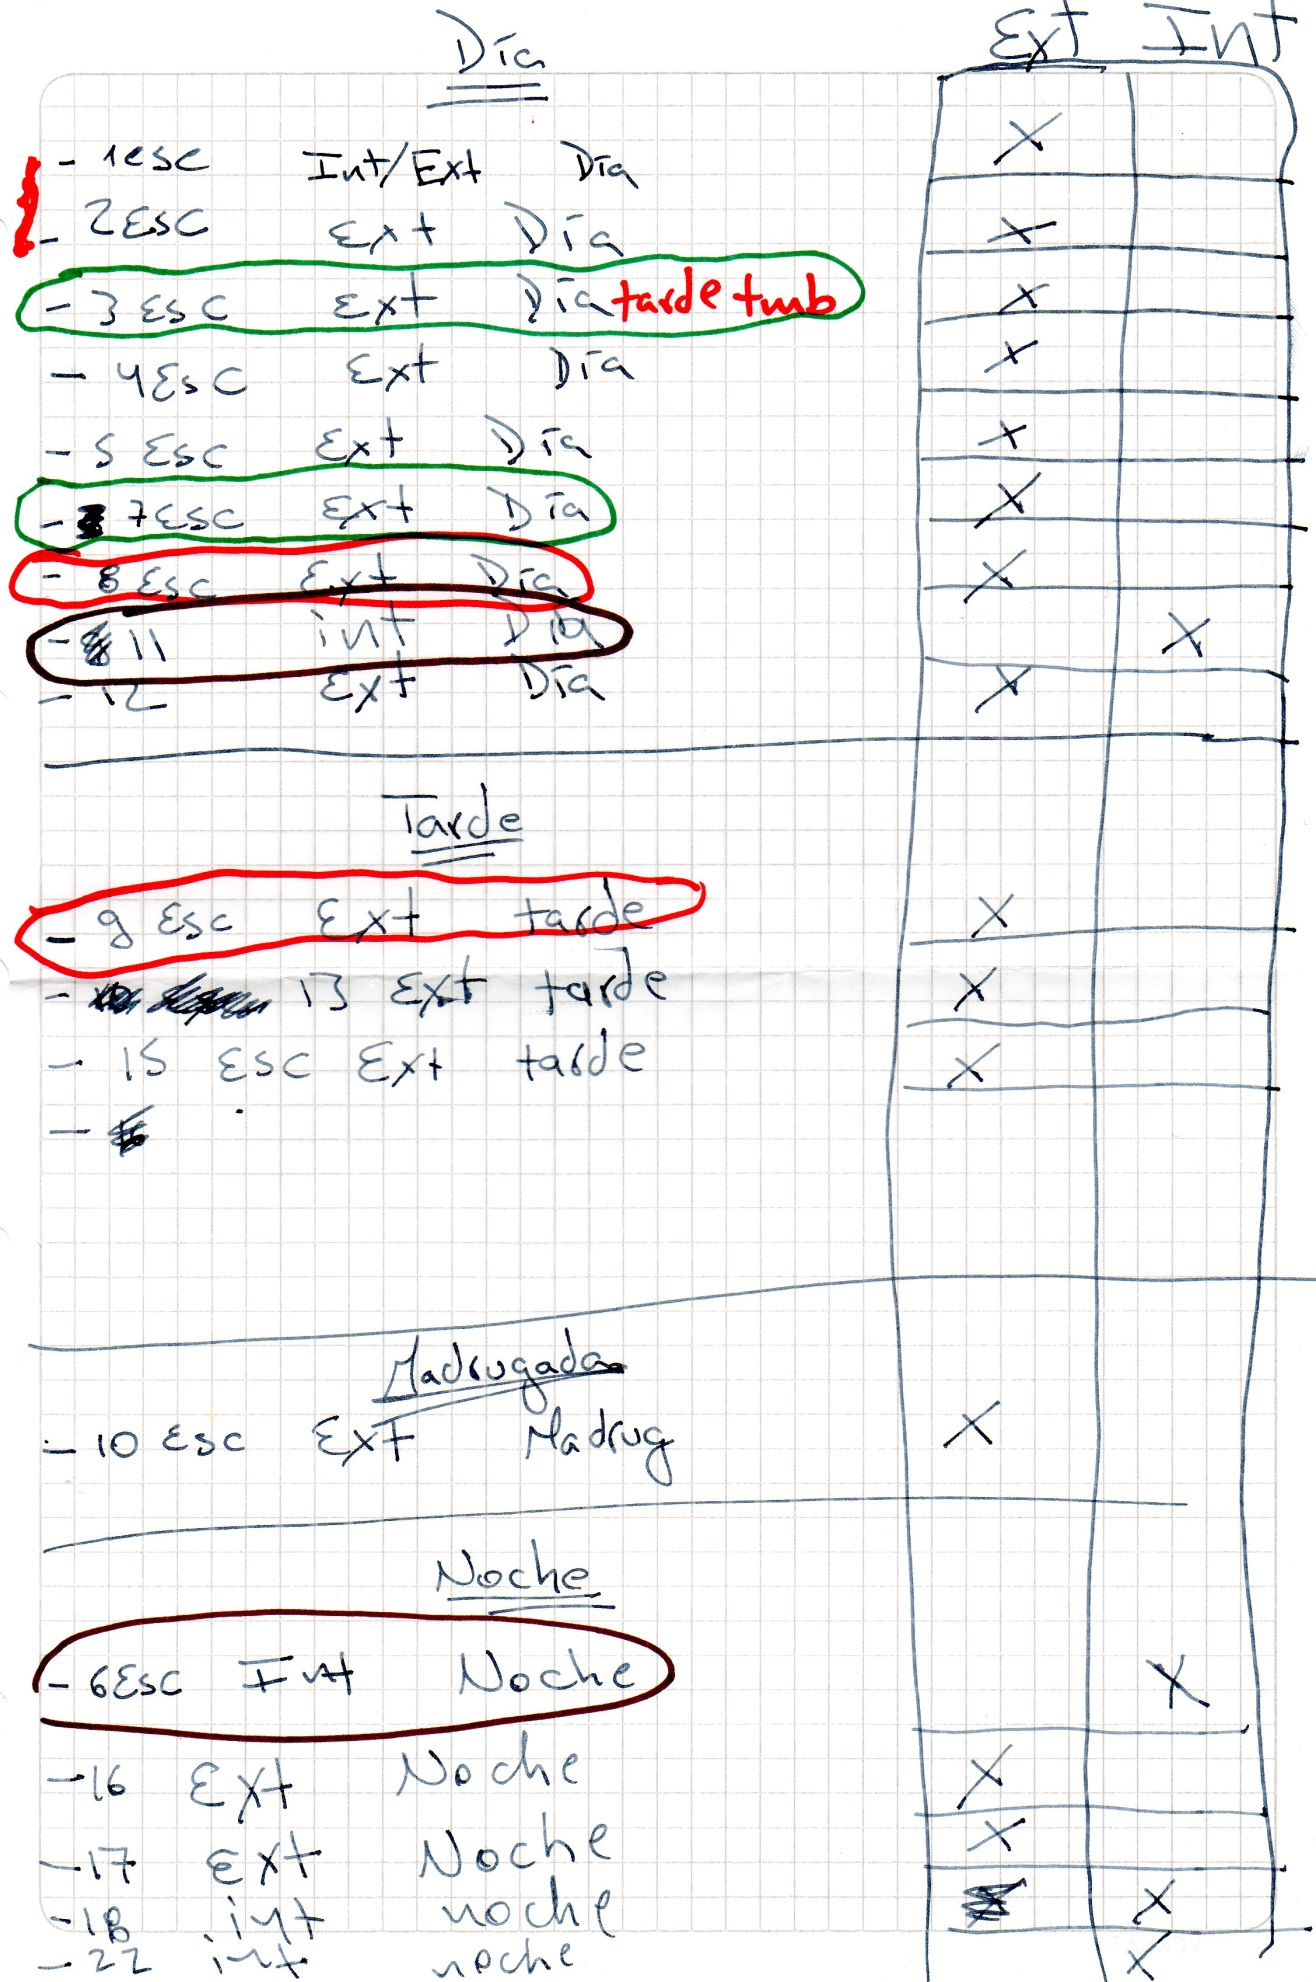 Ext Int
Día
- 1esc Int/Ext Día X
- 2Esc Ext Día X
- 3 Esc Ext Día tarde tmb X
- 4Esc Ext Día X
- 5 Esc Ext Día X
- 7Esc Ext Día X
- 8 Esc Ext Día X
- 11 int Día X
- 12 Ext Día X
Tarde
- 9 Esc Ext tarde X
- 13 Ext tarde X
- 15 Esc Ext tarde X
-
Madrugada
- 10 Esc Ext Madrug X
Noche
- 6Esc Int Noche X
- 16 Ext Noche X
- 17 Ext Noche X
- 18 int noche X
- 22 int noche X